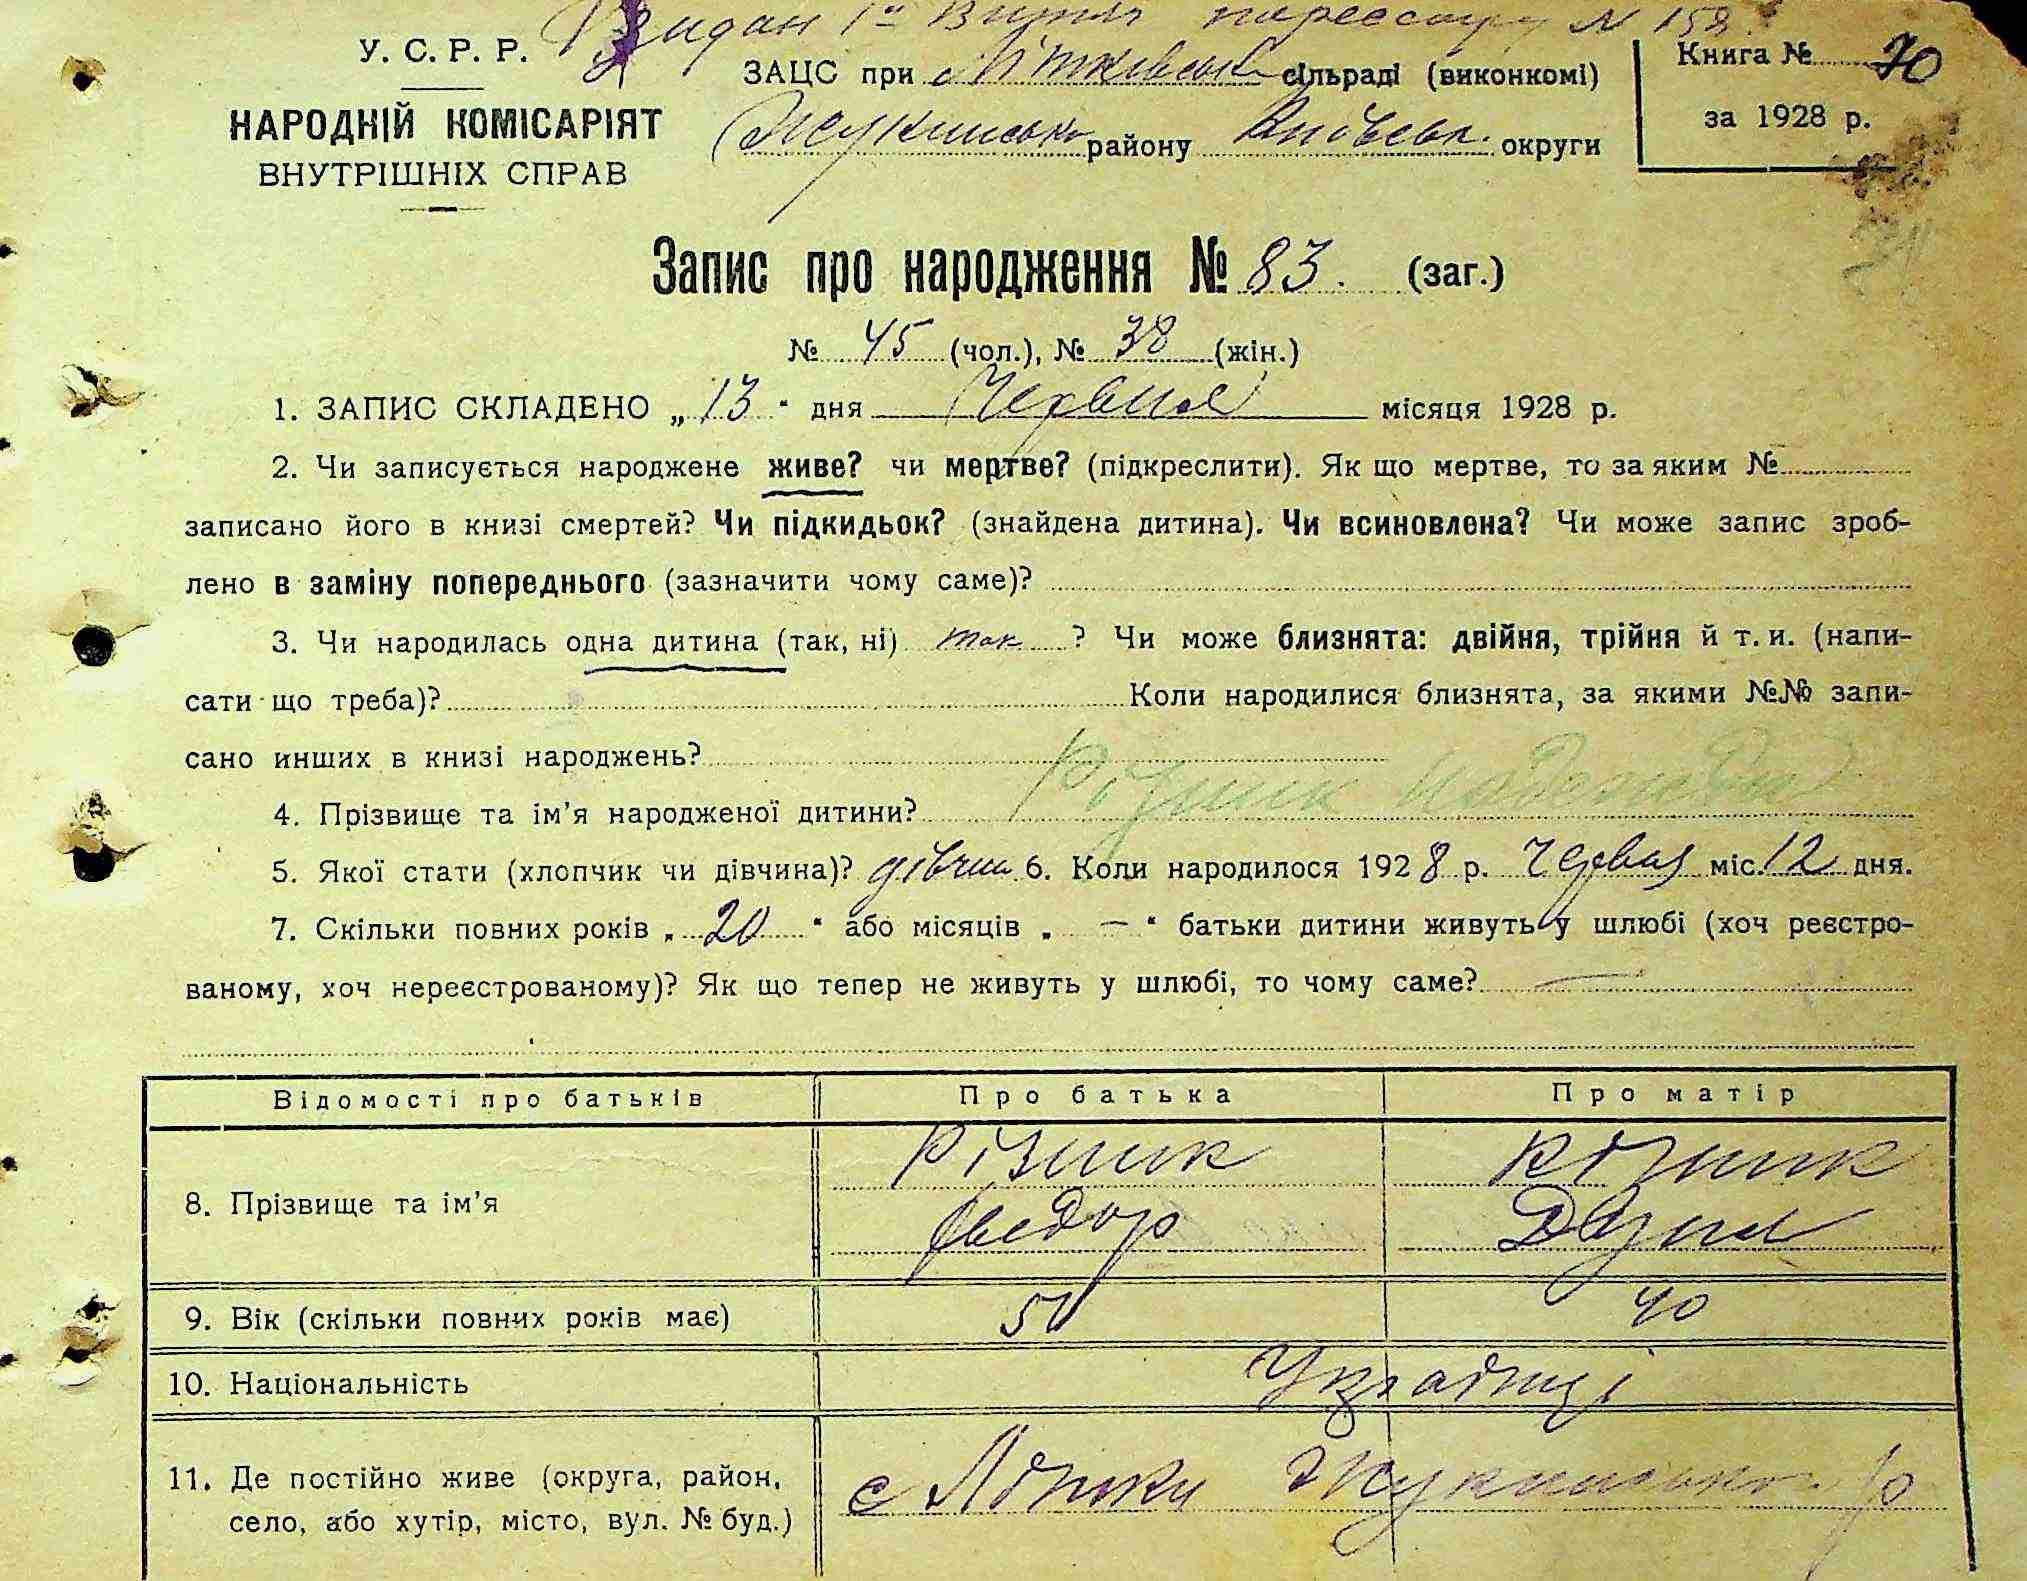 Видан 1й Витяг № 158.
У. С. Р. Р.
НАРОДНІЙ КОМІСАРІЯТ
ВНУТРІШНІХ СПРАВ
ЗАЦС при Літківській сільраді (виконкомі)
Жукинського району Київськ. округи
Книга № 70
за 1928 р.
Запис про народження № 83. (заг.)
№ 45 (чол.), № 38 (жін.)
1. ЗАПИС СКЛАДЕНО „ 13 “ дня Червня місяця 1928 р.
2. Чи записується народжене живе? чи мертве? (підкреслити). Як що мертве, то за яким №
записано його в книзі смертей? Чи підкидьок? (знайдена дитина). Чи всиновлена? Чи може запис зроб-
лено в заміну попереднього (зазначити чому саме)?
3. Чи народилась одна дитина (так, ні) так ? Чи може близнята: двійня, трійня й т. и. (напи-
сати що треба)? Коли народилися близнята, за якими №№ запи-
сано инших в книзі народжень?
4. Прізвище та ім’я народженої дитини? Різник Надежда
5. Якої стати (хлопчик чи дівчина)? дівчин 6. Коли народилося 1928 р. Червня міс. 12 дня.
7. Скільки повних років „ 20 “ або місяців „ — “ батьки дитини живуть у шлюбі (хоч реєстро-
ваному, хоч нереєстрованому)? Як що тепер не живуть у шлюбі, то чому саме? —
Відомості про батьків Про батька Про матір
8. Прізвище та ім’я Різник Різник
Федор
9. Вік (скільки повних років має) 50 40
10. Національність Українці
11. Де постійно живе (округа, район,
село, або хутір, місто, вул. № буд.) с Літки Жукинського р